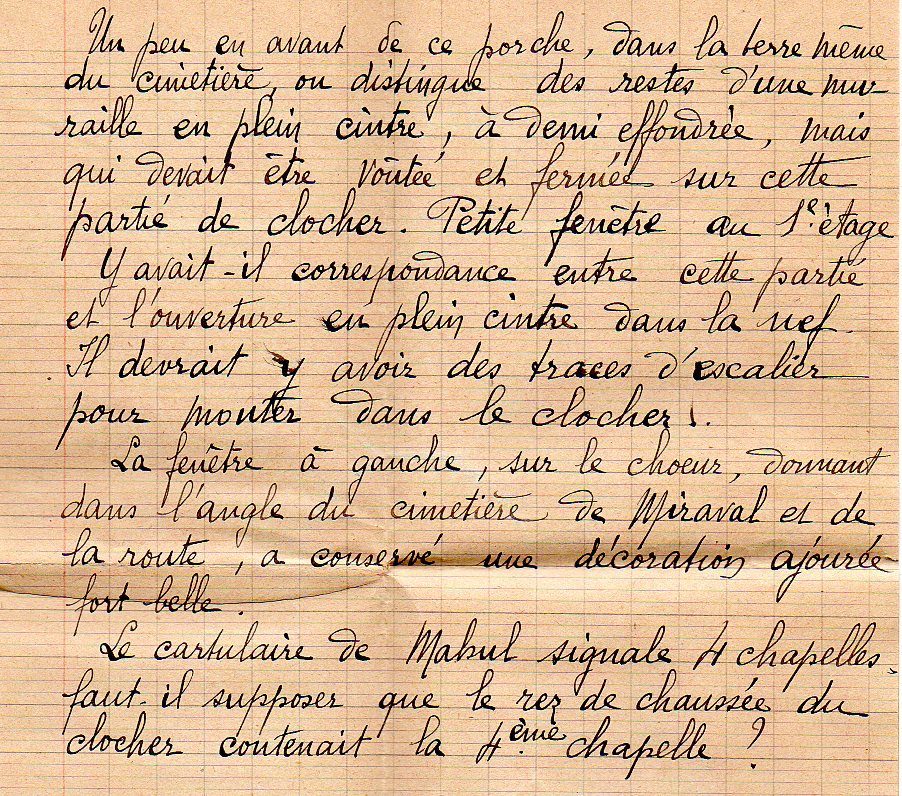 Un peu en avant de ce porche, dans la terre même
du cimetière, on distingue des restes d'une mu
raille en plein cintre, à demi effondrée, mais
qui devait être voûtée et fermée sur cette
partie de clocher. Petite fenêtre au 1er étage
Y avait-il correspondance entre cette partie
et l'ouverture en plein cintre dans la nef.
Il devrait y avoir des traces d'escalier
pour monter dans le clocher.
La fenêtre à gauche, sur le choeur, donnant
dans l'angle du cimetière de Miraval et de
la route, a conservé une décoration ajourée
fort belle.
Le cartulaire de Mahul signale 4 chapelles.
faut-il supposer que le rez de chaussée du
clocher contenait la 4ème chapelle ?